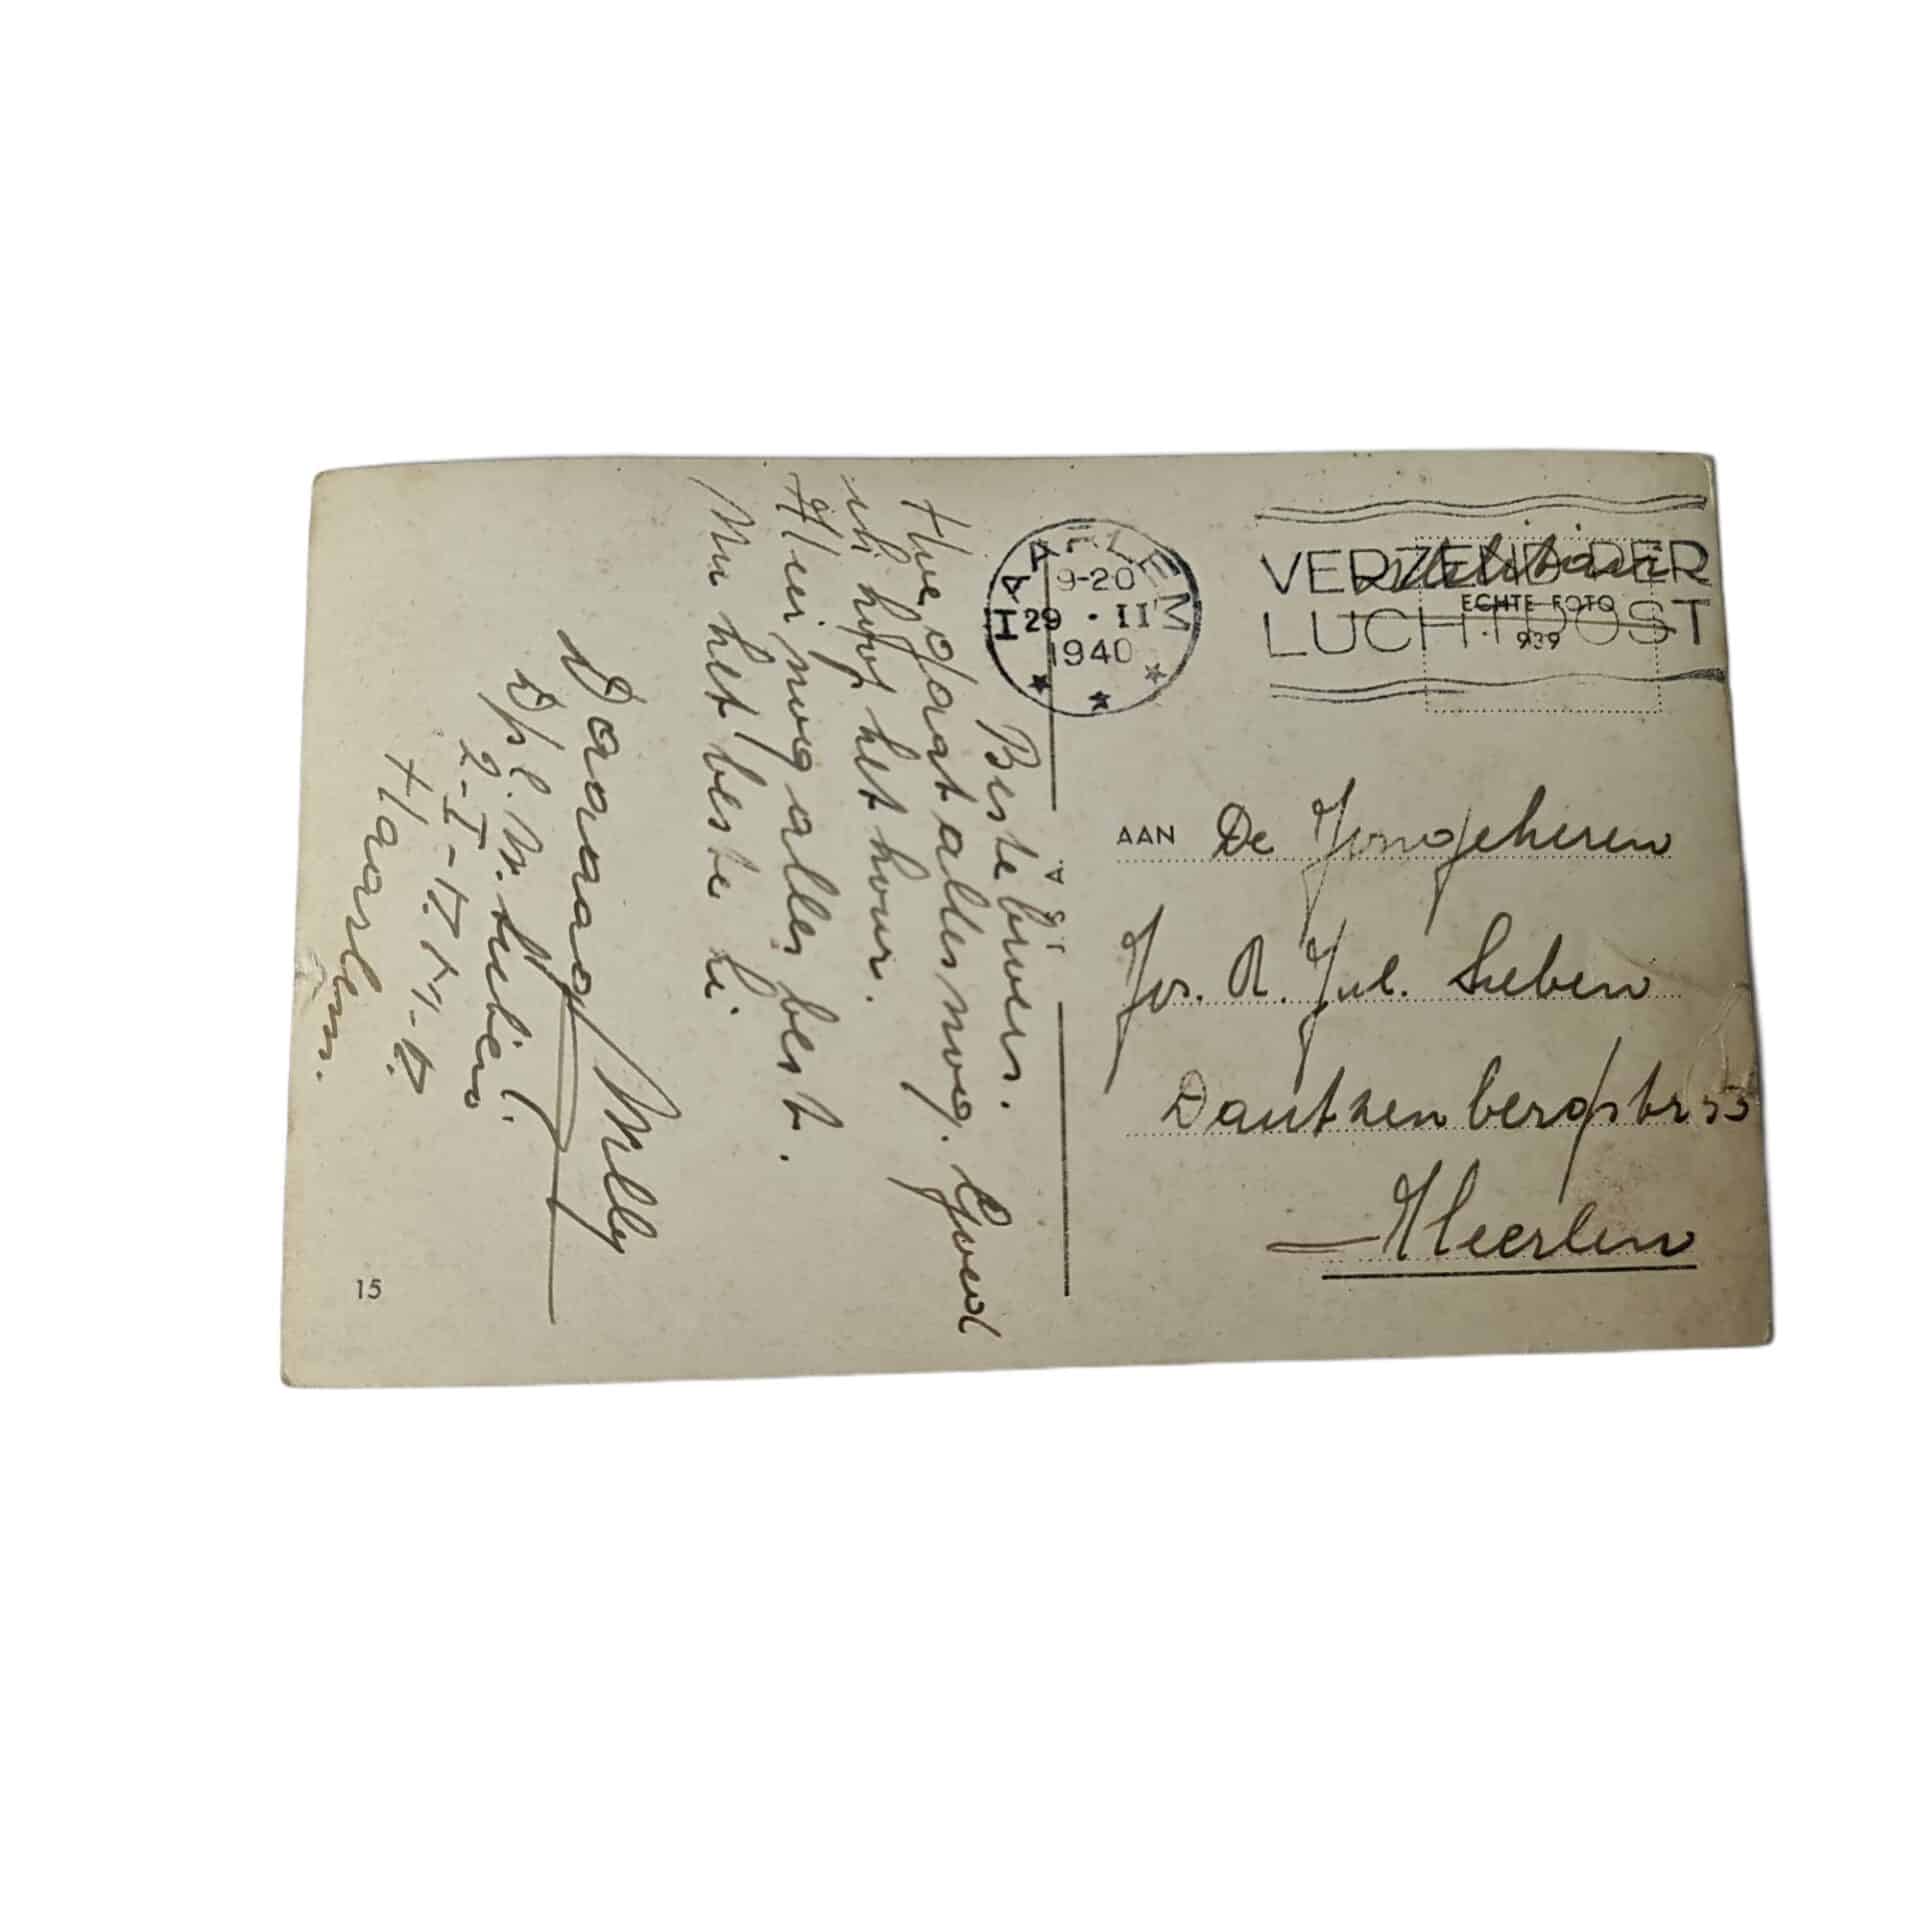 Beste broers.
Hoe gaat alles nog. Goed
ik hoop het hoor.
Hier nog alles best.
Nu het beste hé.
Daaaag Willy
Dpl. W. Lieben
2-I-17.R.I.-
Haarlem.
15
HAARLEM
9-20
29 · II
1940
VERZEND PER
LUCHTPOST
Militair
ECHTE FOTO
939
AAN De Jongeheren
Jos. R. Jul. Lieben
Dautzenbergstr 33
Heerlen